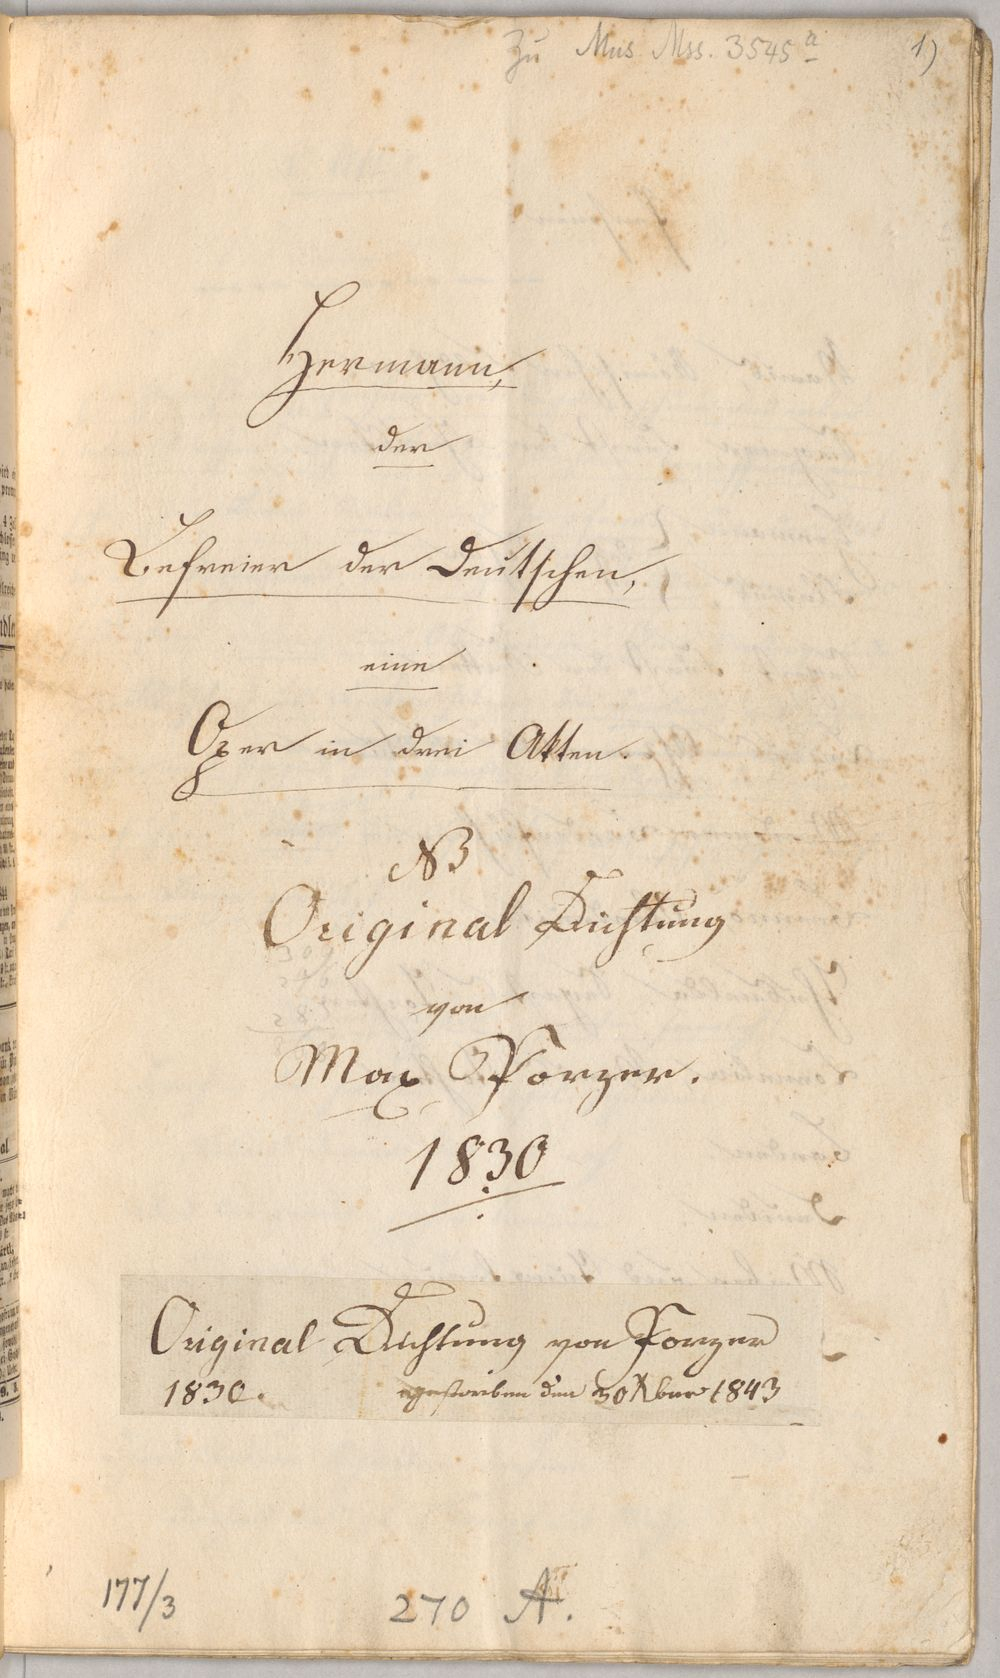 Zu Mus. Mss. 3545 a
1)
Hermann,
der
Befreier der Deutschen,
eine
Oper in drei Akten.
NB
Original Dichtung
von
Max Porzer.
1830
Original Dichtung von Porzer
1830. gestorben den 30 Xber 1843
177/3
270 A.